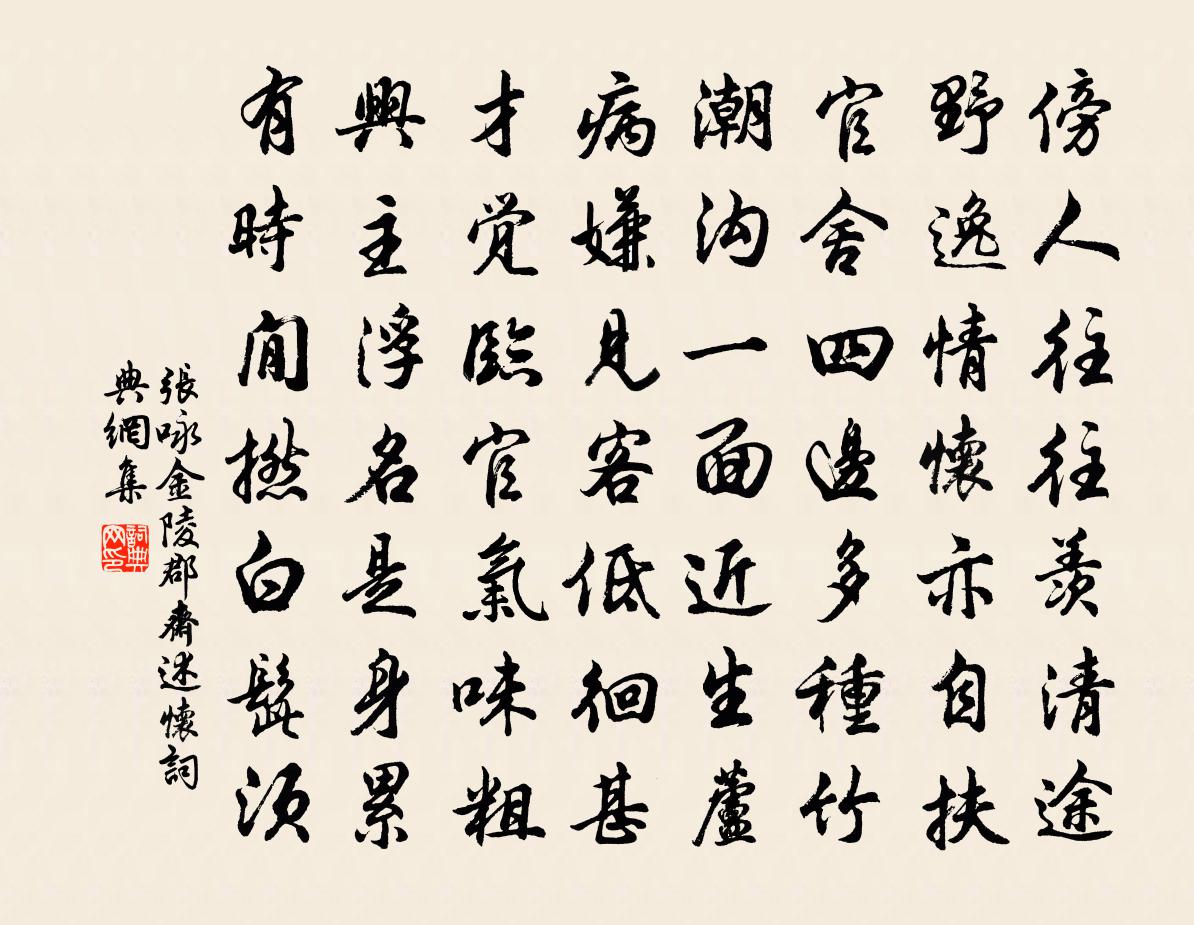 傍人往往羨清途
野逸情懷亦自扶
官舍四邊多種竹
潮沟一面近生蘆
病嫌見客低徊甚
才覺臨官氣味粗
興主浮名是身累
有時閒撚白髭須
張咏金陵郡齋述懷詞
典網集
詞典网印